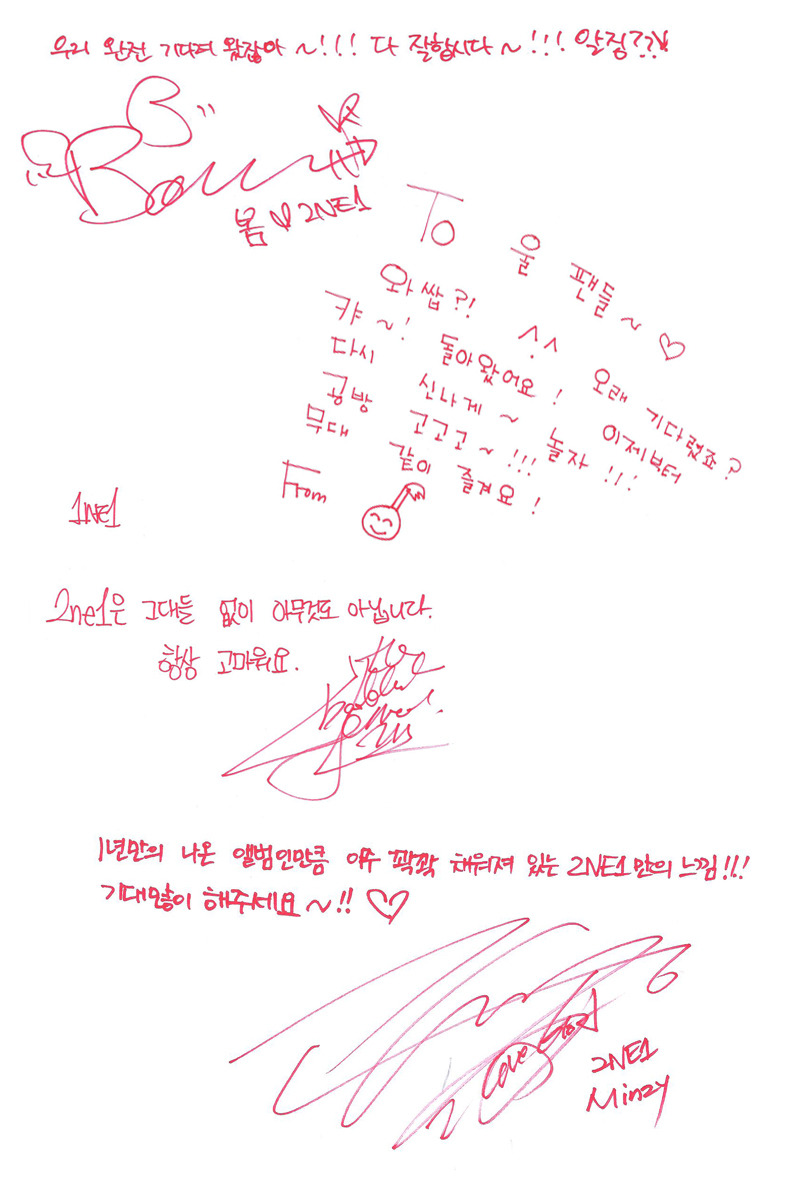 우리 완전 기다려 왔잖아 ~!!! 다 잘합시다 ~!!! 알징???
Bom
봄 ♡ 2NE1
To 울 팬들 ~ ♡
와썹?! ^^ 오래 기다렸죠?
캬 ~! 돌아왔어요! 이제부터
다시 신나게 ~ 놀자!!!
공방 고고고 ~!!!
무대 같이 즐겨요!
From
1NE1
2ne1은 그대들 없이 아무것도 아닙니다.
항상 고마워요.
1년만의 나온 앨범인만큼 아주 꽉꽉 채워져 있는 2NE1만의 느낌!!!
기대많이 해주세요 ~!! ♡
Love
2NE1
Minzy